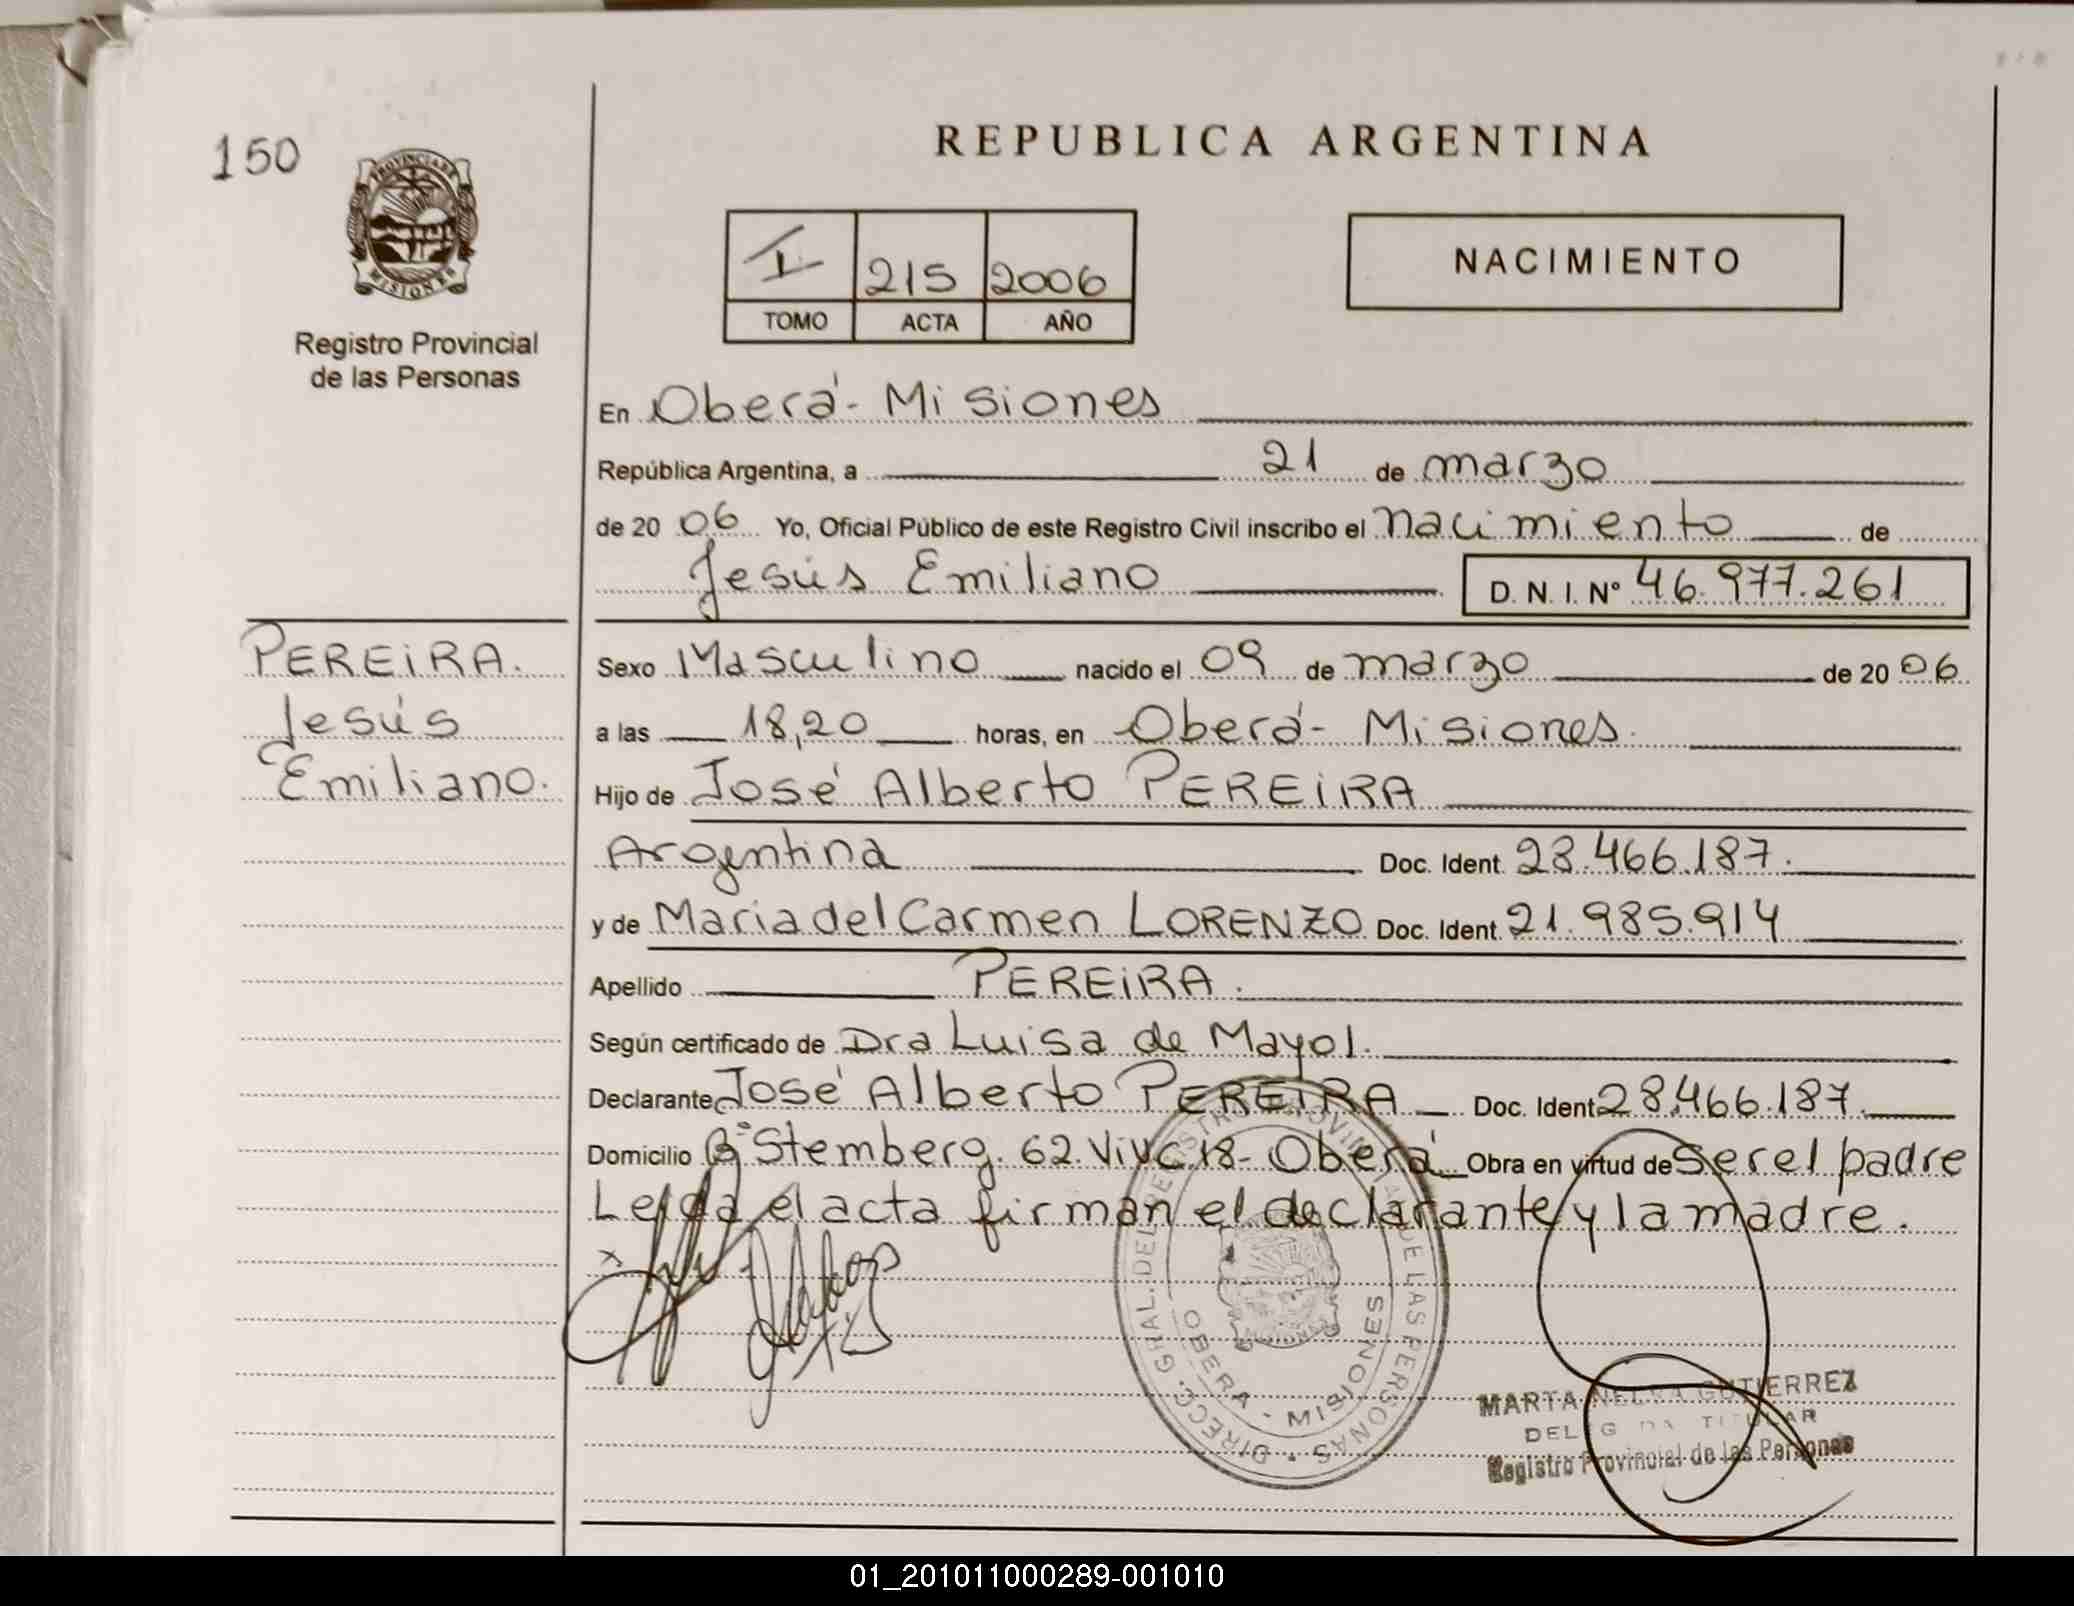 150
PROVINCIA DE
MISIONES
Registro Provincial
de las Personas
REPUBLICA ARGENTINA
I 215 2006
TOMO ACTA AÑO
NACIMIENTO
En Oberá - Misiones
República Argentina, a 21 de marzo
de 20 06 Yo, Oficial Público de este Registro Civil inscribo el nacimiento de
Jesús Emiliano D. N. I. Nº 46.977.261
PEREIRA.
Jesús
Emiliano.
Sexo Masculino nacido el 09 de marzo de 20 06
a las 18,20 horas, en Oberá - Misiones.
Hijo de José Alberto PEREIRA
Argentina Doc. Ident. 28.466.187.
y de Maria del Carmen LORENZO Doc. Ident. 21.985.914
Apellido PEREIRA.
Según certificado de Dra Luisa de Mayol.
Declarante José Alberto PEREIRA Doc. Ident. 28.466.187.
Domicilio Bº Stemberg. 62. Viv. C.18 - Oberá Obra en virtud de ser el padre
Leida el acta firman el declarante y la madre.
DIRECC. GRAL. DEL REGISTRO PROVINCIAL DE LAS PERSONAS
OBERA - MISIONES
MARTA GUTIERREZ
DELEGADA TITULAR
Registro Provincial de las Personas
01_201011000289-001010